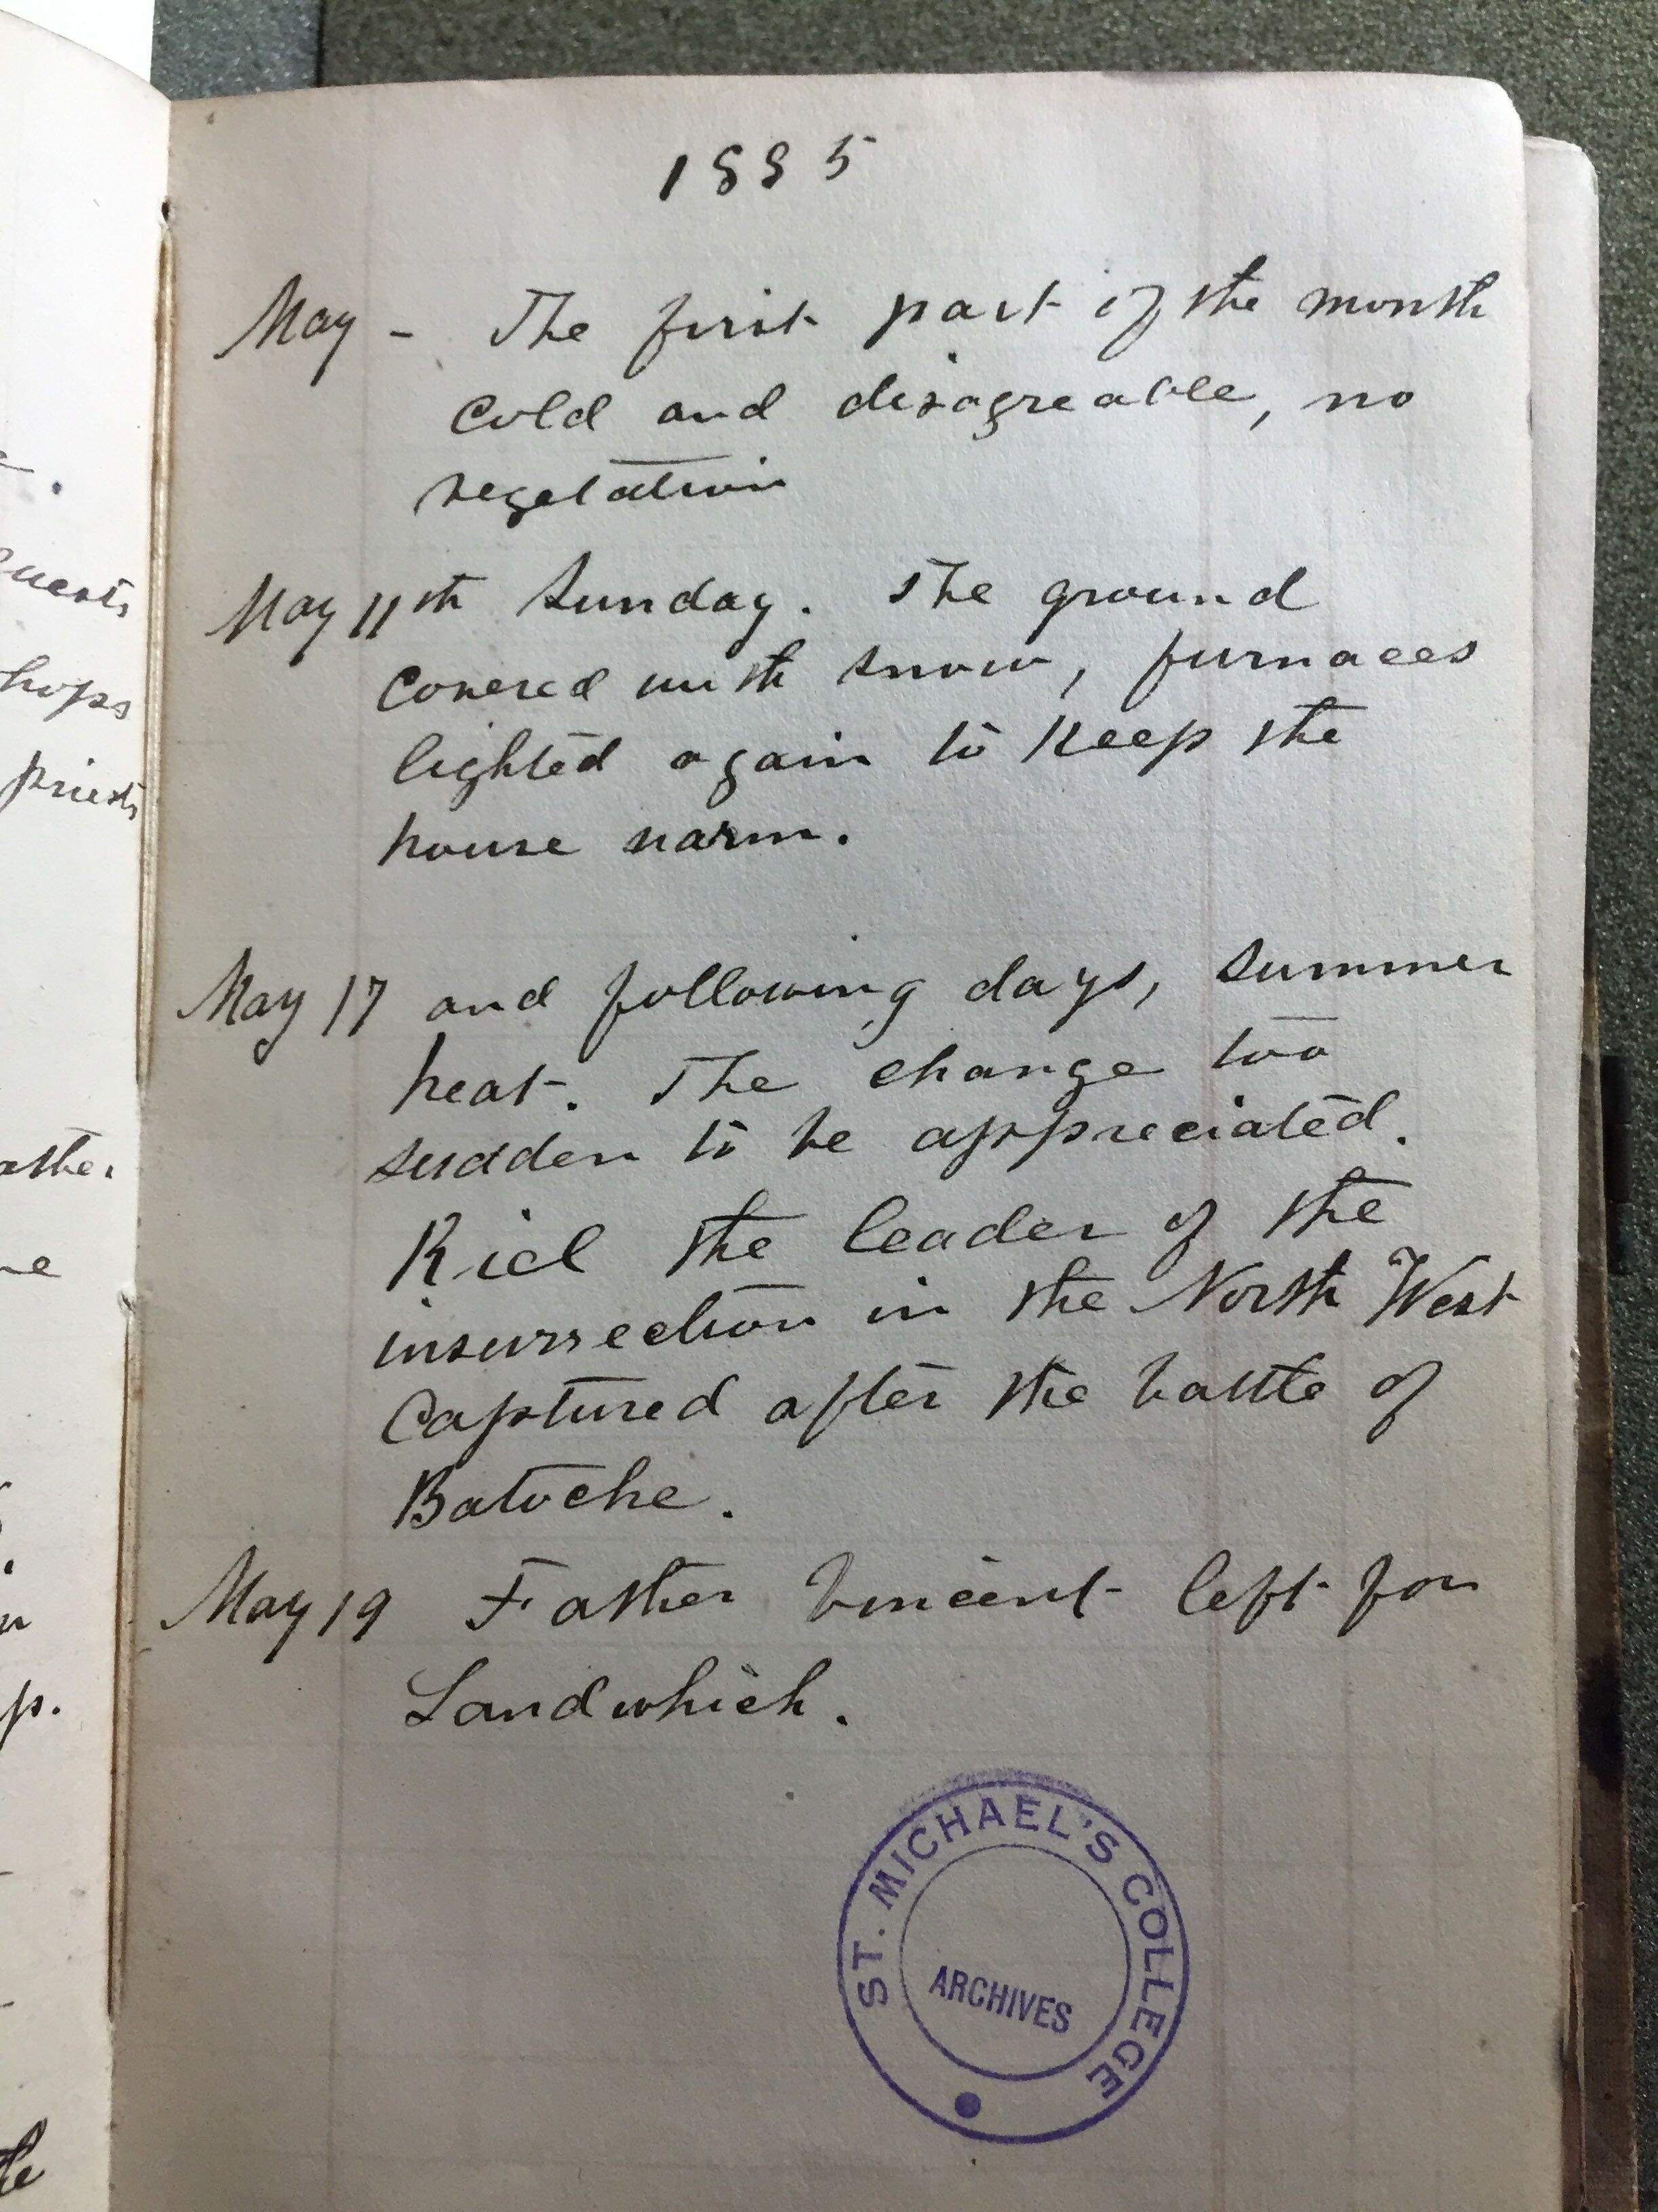 1885
May - The first part of the month
cold and disagreable, no
vegetation
May 11th Sunday. The ground
covered with snow, furnaces
lighted again to keep the
house warm.
May 17 and following days, summer
heat. The change too
sudden to be appreciated.
Riel the leader of the
insurrection in the North West
captured after the battle of
Batoche.
May 19 Father Vincent left for
Sandwhich.
ST. MICHAEL'S COLLEGE
ARCHIVES
uests
hops
priests